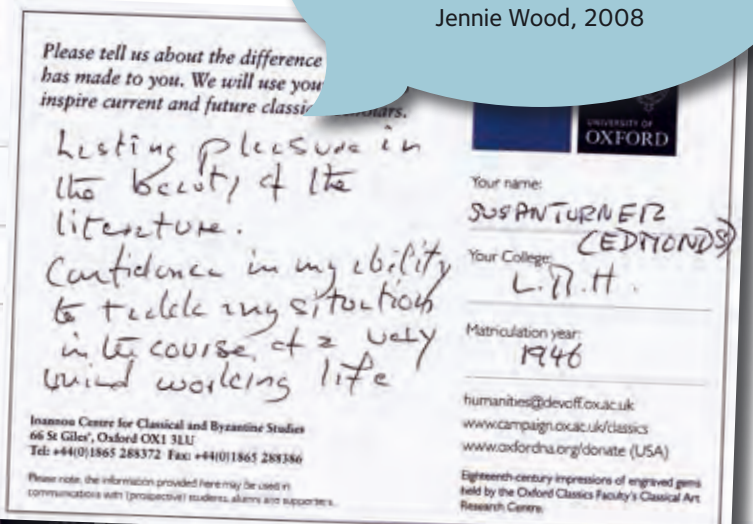 Jennie Wood, 2008
Please tell us about the difference
has made to you. We will use you
inspire current and future classic
Lasting pleasure in
the beauty of the
literature.
Confidence in my ability
to tackle any situation
in the course of a very
varied working life
Ioannou Centre for Classical and Byzantine Studies
66 St Giles', Oxford OX1 3LU
Tel: +44(0)1865 288372 Fax: +44(0)1865 288386
Please note, the information provided here may be used in
communications with (prospective) students, alumni and supporters.
UNIVERSITY OF
OXFORD
Your name:
SUSAN TURNER
(EDMONDS)
Your College:
L.M.H.
Matriculation year:
1946
humanities@devoff.ox.ac.uk
www.campaign.ox.ac.uk/classics
www.oxfordna.org/donate (USA)
Eighteenth-century impressions of engraved gems
held by the Oxford Classics Faculty's Classical Art
Research Centre.